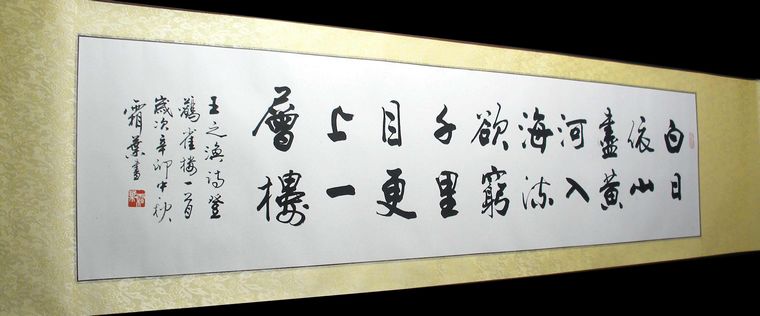 白日
依山
盡黃
河入
海流
欲窮
千里
目更
上一
層樓
王之渙詩登
鸛雀樓一首
歲次辛卯中秋
霜葉書